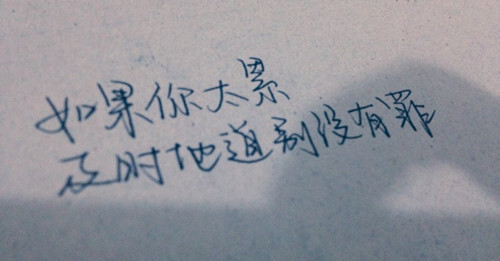 如果你太累
及时地道别没有罪